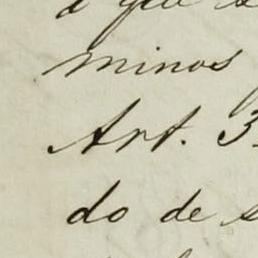 a que
minos
Art. 3
do de